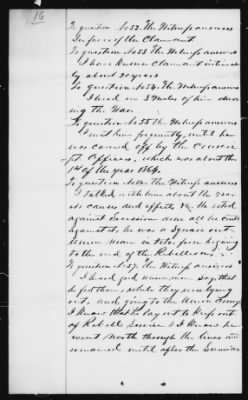 16
To question No 52. The Witness answers
In favor of the Claimant
To question No 53. The Witness answers
I have known Claimant intimate
ly about 20 years
To question No 54. The Witness answers
I lived in 3 Miles of him dur
ing the War.
To question No 55 the Witness answers
I met him frequently, until he
was carried off by the Conscri
pt Officers, which was about the
1st of the year 1864.
To question No 56. The Witness answers
I talked with him about the War
its causes and effects &c. He voted
against Secession done all he could
against it, he was a square out
Union Man in toto, from beging
to the end of the Rebellion.
To question No 57. the Witness answers
I heard good union men say, that
he fed them while they were lying
out, and going to the Union Army
I know that he lay out to keep out
of Rebell Service & I know he
went North through the lines and
remained until after the Surrender